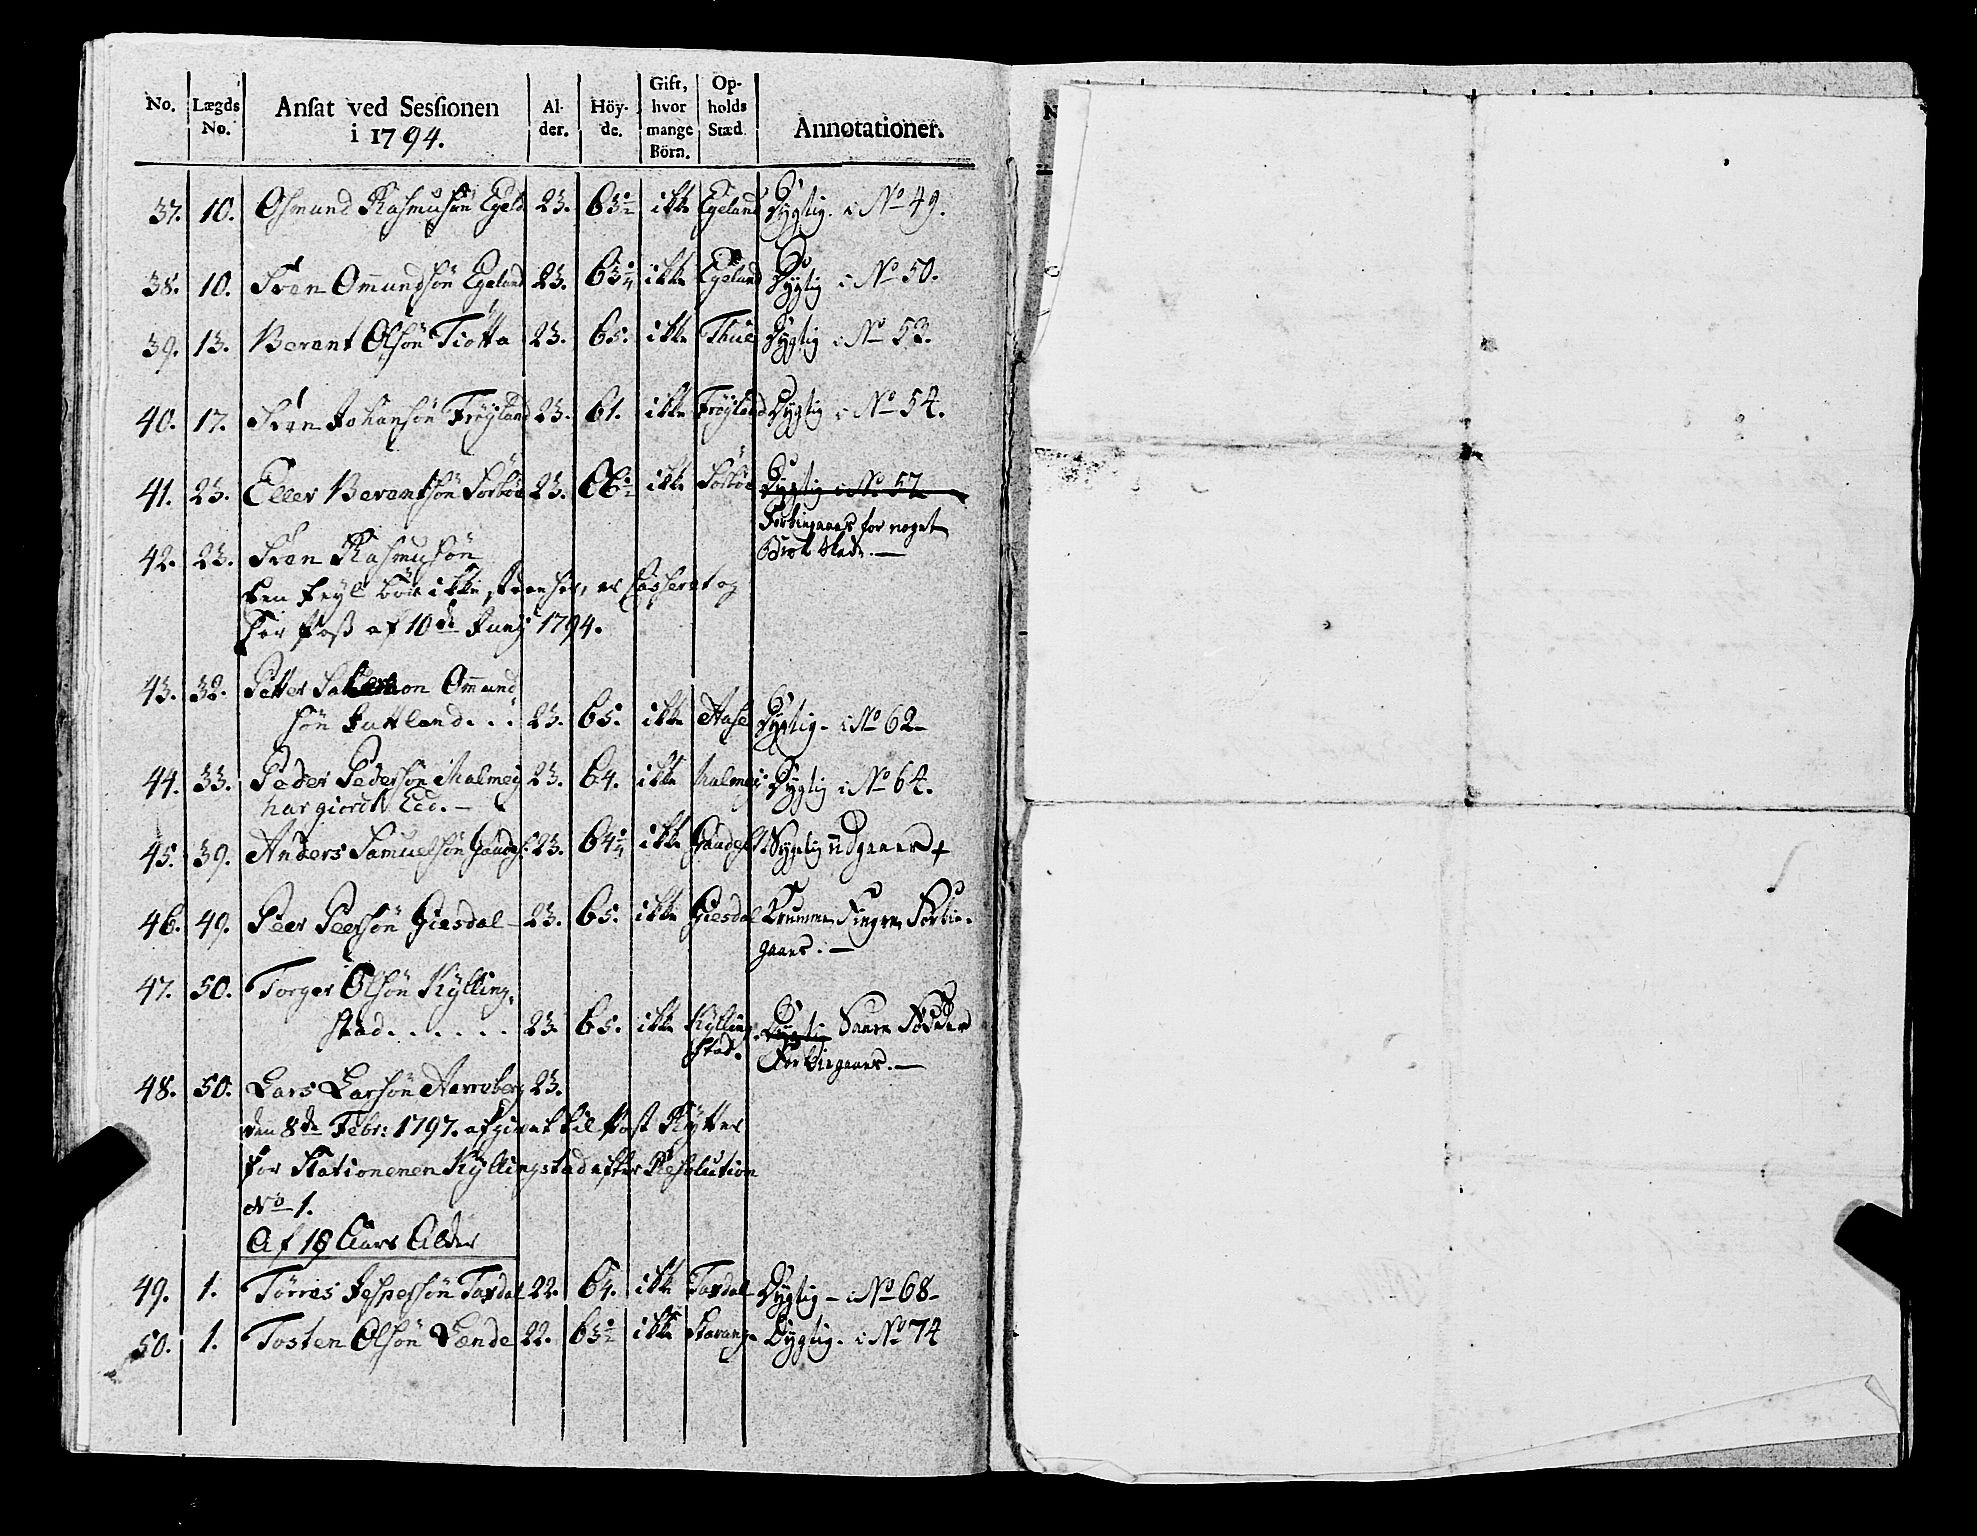 No. Lægds No. Ansat ved Sessionen i 1794. Al- der. Höy- de. Gift, hvor mange Börn. Op- holds Stæd. Annotationer.
37. 10. Osmund Rasmusön Egeld 23. 63 1/2 ikke Egeland Dygtig. i No 49.
38. 10. Sven Omundsön Egeland 23. 63 1/4 ikke Egeland Dygtig i No 50.
39. 13. Berent Olsön Tiötta 23. 65. ikke Thue Dygtig i No 53.
40. 17. Sven Johansön Fröyland 23. 61. ikke Fröyland Dygtig i No 54.
41. 23. Eller Berentsön Sörböe 23. 66 1/2 ikke Sörböe Dygtig i No 57
Forbigaaes for noget
42. 23. Sven Rasmusön
ken feyl bör ikke staae her, er Casseret og
her Pass af 10de Junij 1794.
43. 32. Petter Salomon Omund
sön Jattland... 23. 65. ikke Aase Dygtig. i No 62
44. 33. Peder Pedersön Malmey 23. 64. ikke Malmey Dygtig i No 64.
har giordt Eed.
45. 39. Anders Samuelsön Gaudes: 23. 64 1/4 ikke Gaudes: Sygelig udgaaer +
46. 49. Peer Peersön Giesdal 23. 65. ikke Giesdal Krumme Fingre Forbie-
gaaes.
47. 50. Torger Olsön Kylling-
stad...... 23. 65. ikke Kylling stad. Dygtig Saare Födder
Forbiegaaes.
48. 50. Lars Larsön Aareberg 23.
den 8de Febr: 1797. afgivet til Post Rytter
for Stationenen Kyllingstad efter Resolution
No 1.
Af 18 Aars Alder
49. 1. Törres Jespersön Taxdal 22. 64. ikke Taxdal Dygtig i No 68
50. 1. Tosten Olsön Lende 22. 63 1/2 ikke Stavang. Dygtig. i No 74